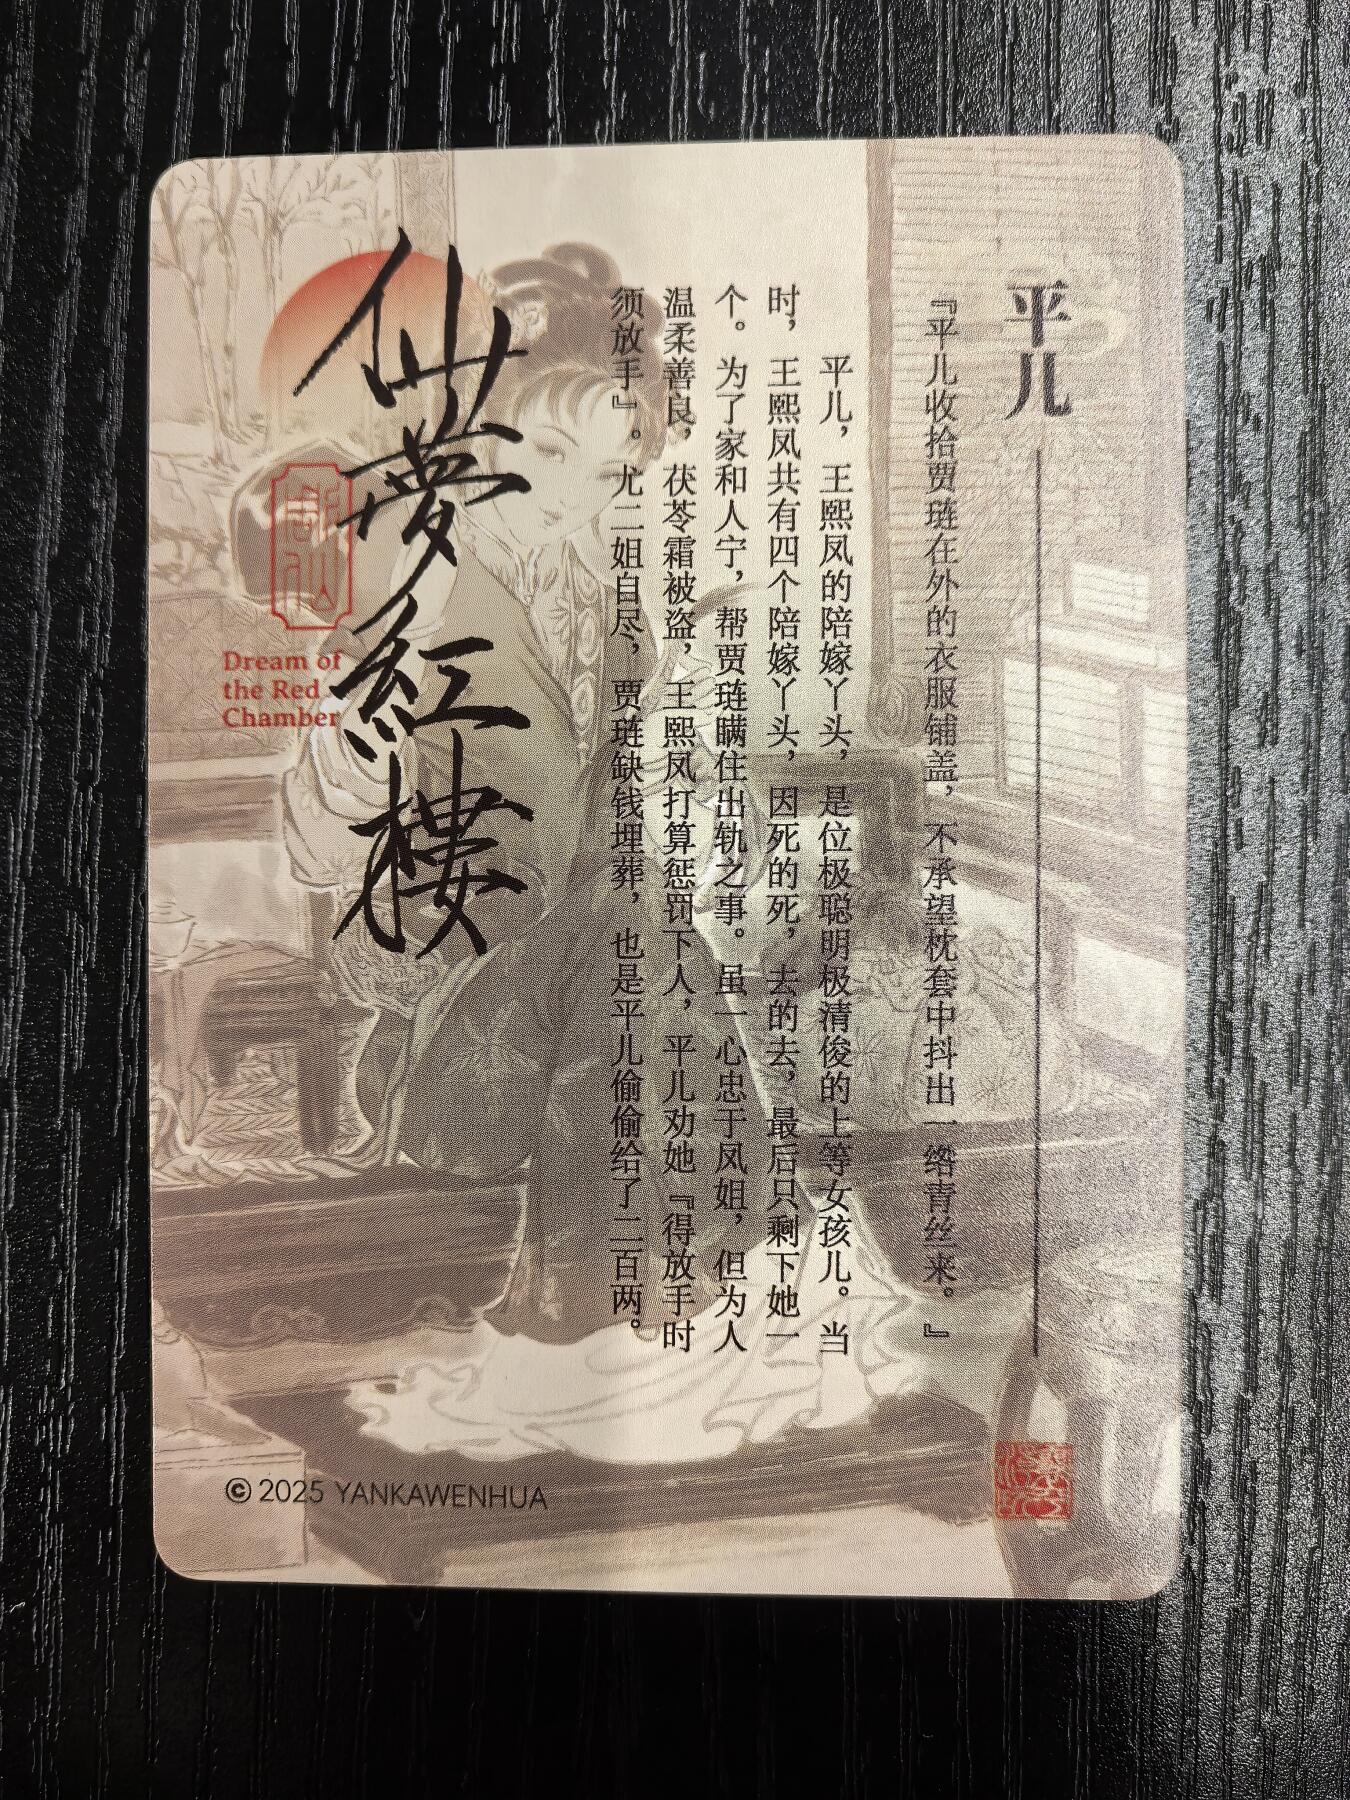 平儿
『平儿收拾贾琏在外的衣服铺盖，不承望枕套中抖出一绺青丝来。』
平儿，王熙凤的陪嫁丫头，是位极聪明极清俊的上等女孩儿。当
时，王熙凤共有四个陪嫁丫头，因死的死，去的去，最后只剩下她一
个。为了家和人宁，帮贾琏瞒住出轨之事。虽一心忠于凤姐，但为人
温柔善良，茯苓霜被盗，王熙凤打算惩罚下人，平儿劝她『得放手时
须放手』。尤二姐自尽，贾琏缺钱埋葬，也是平儿偷偷给了二百两。
仙夢紅樓
Dream of
the Red
Chamber
© 2025 YANKAWENHUA